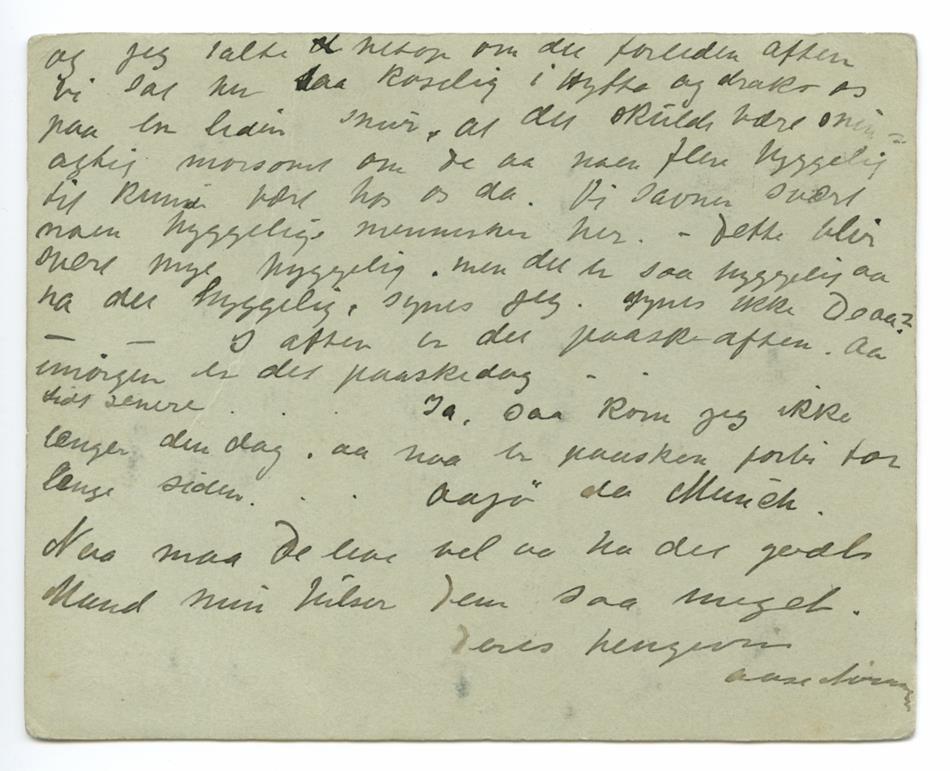 og jeg talte netop om det forleden aften
vi sat her saa koselig i hytta og drakk os
paa en liden snur, at det skulde være min=
agtig morsomt om De aa noen flere hyggelig
til kunne vært hos os da. Vi savner svært
noen hyggelige mennesker her. – Dette blir
svert mye hyggelig. men det er saa hyggelig aa
ha det hyggelig, synes jeg. synes ikke De aa?
— — I aften er det paaske-aften. aa
imorgen er det paaskedag - .
tidt senere . . . Ja, saa kom jeg ikke
lenger den dag. aa naa er paasken forbi for
lenge siden. . . aajö da Munch.
Naa maa De leve vel aa ha det godt
Mand min hilser Dem saa meget.
Deres hengivne
aase